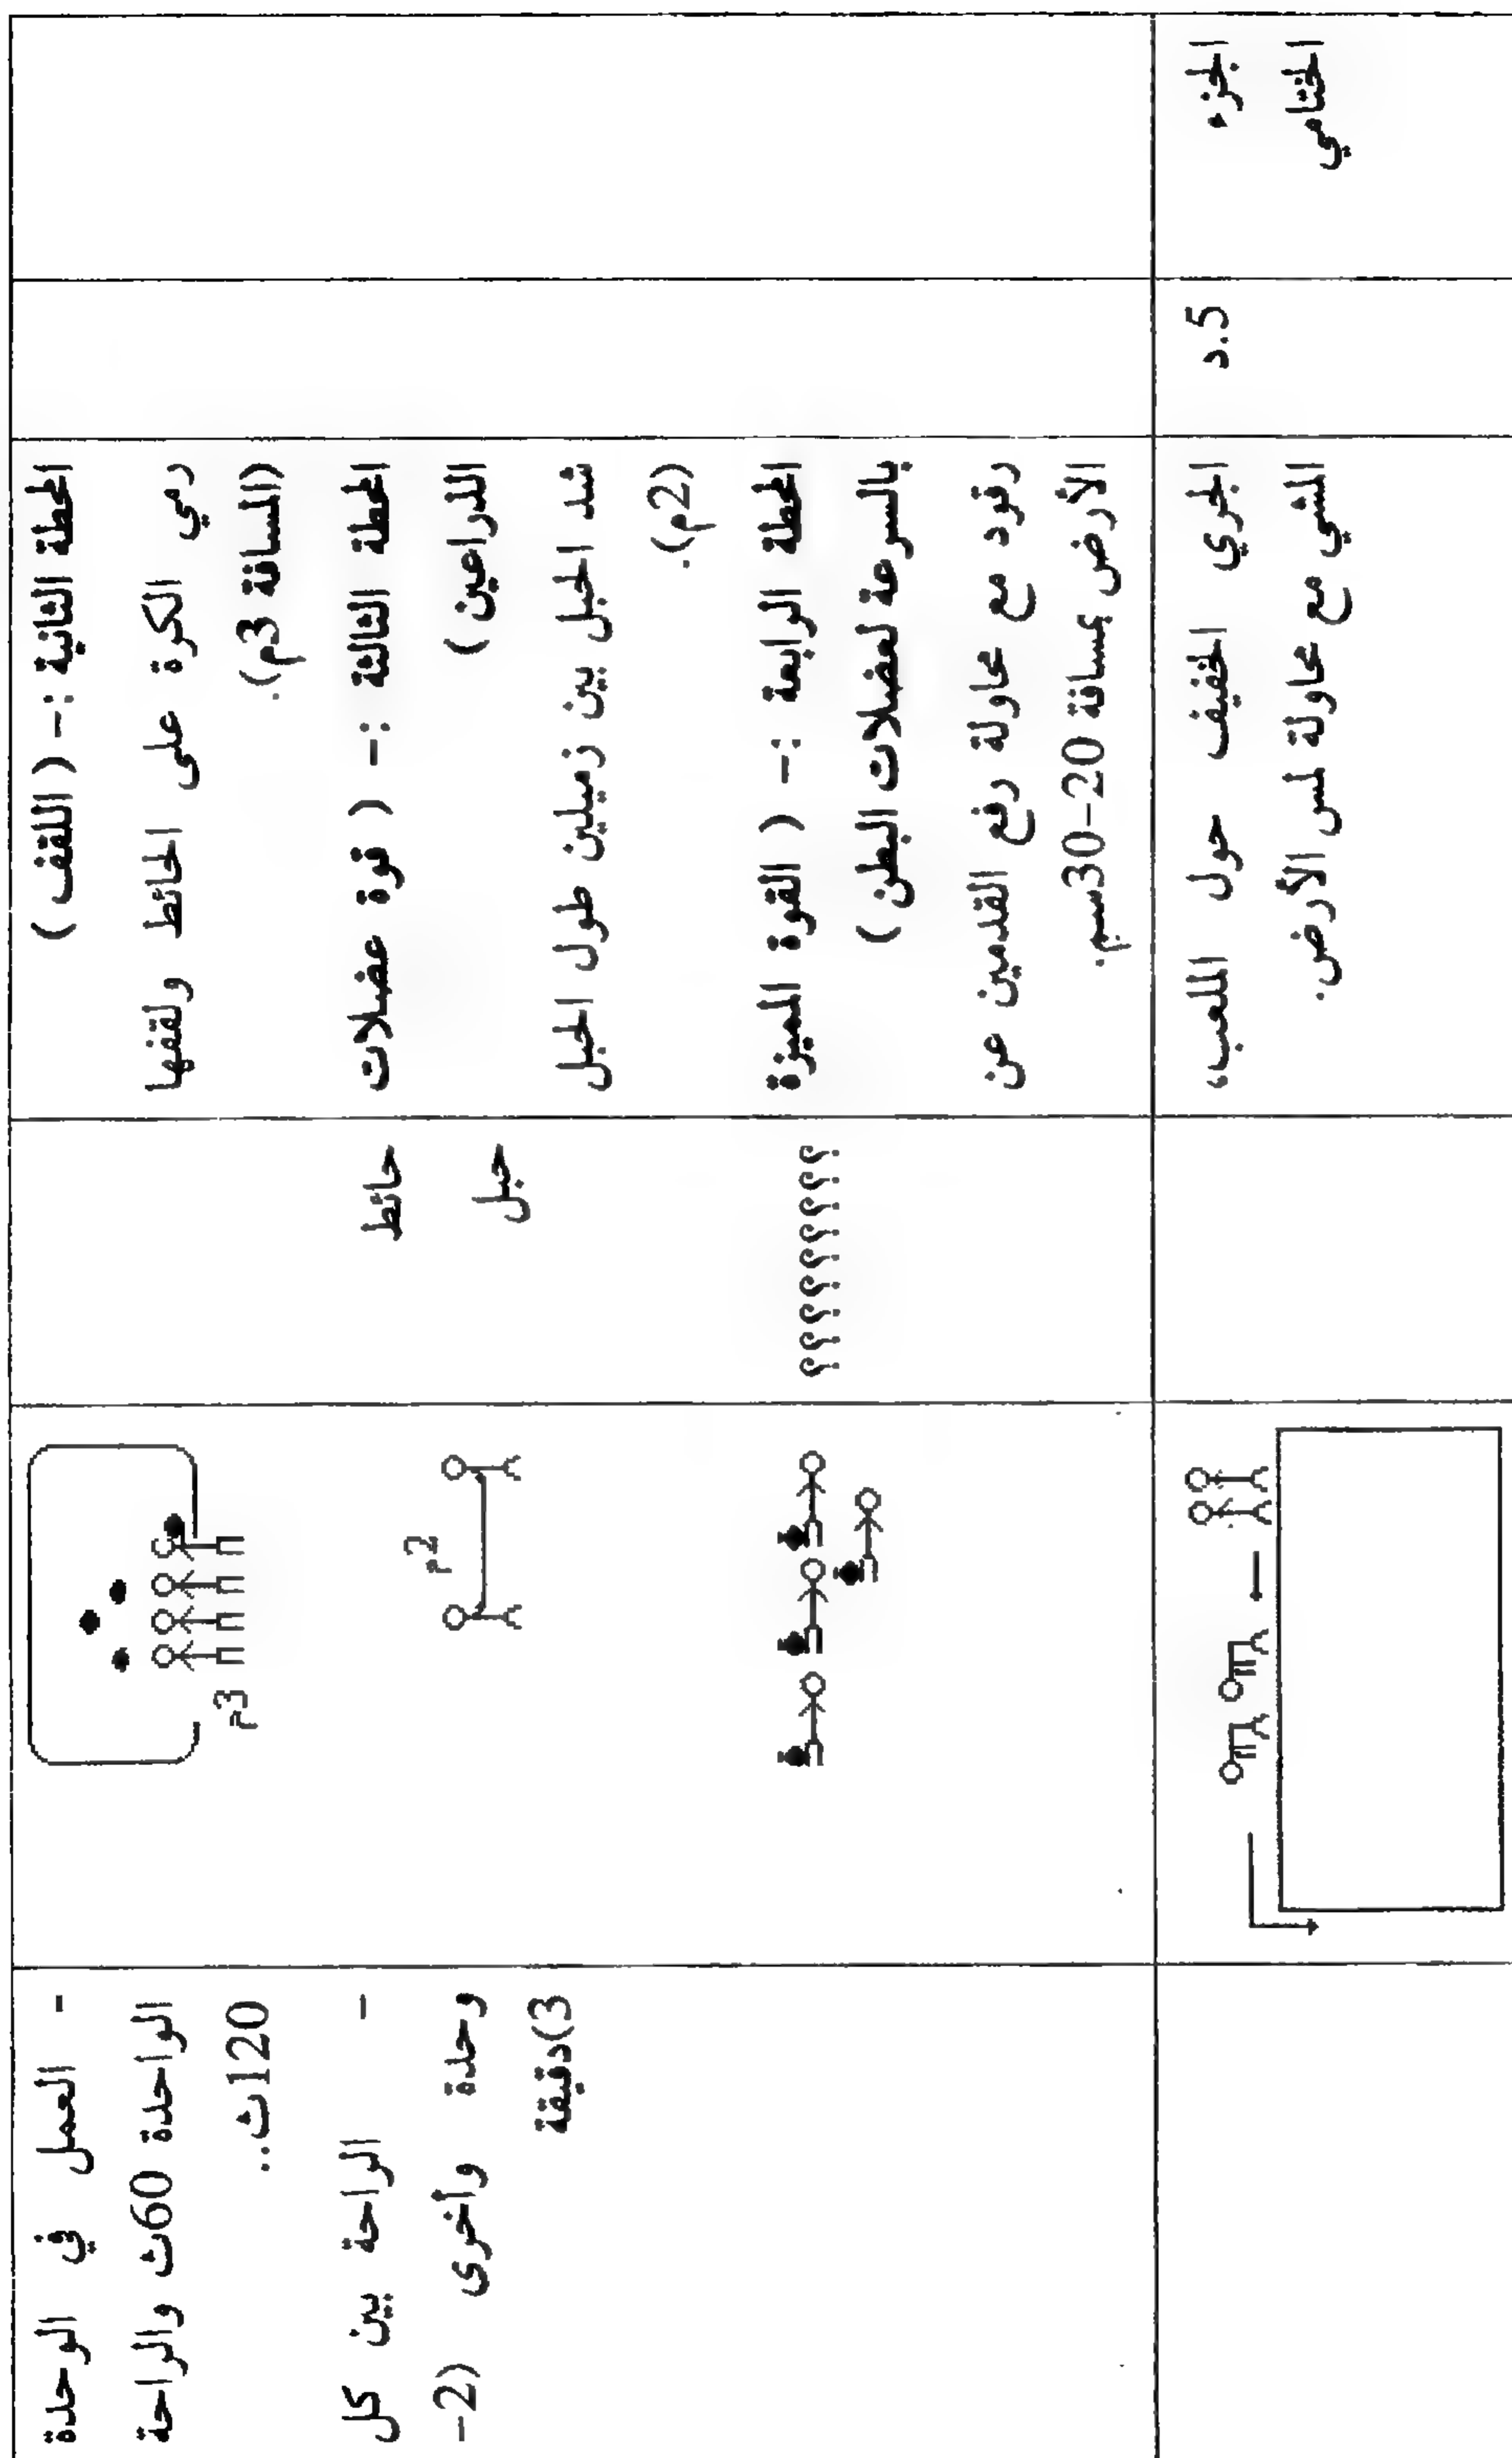 المحطة الثانية :- ( اللقف )
رمي الكرة على الحائط ولقفها
(المسافة 3م).
المحطة الثالثة :- ( قوة عضلات
الذراعين )
شد الحبل بين زميلين طول الحبل
(2م).
المحطة الرابعة :- ( القوة المميزة
بالسرعة لعضلات البطن )
رقود مع محاولة رفع القدمين عن
الأرض بمسافة 20-30سم.
حائط
حبل
؟؟؟؟؟؟؟؟؟
3م
2م
- العمل في الوحدة
الواحدة 60ث والراحة
120ث..
- الراحة بين كل
وحدة وأخرى (2-
3)دقيقة
الجزء
الختامي
5.د
الجري الخفيف حول الملعب،
المشي مع محاولة لمس الأرض.